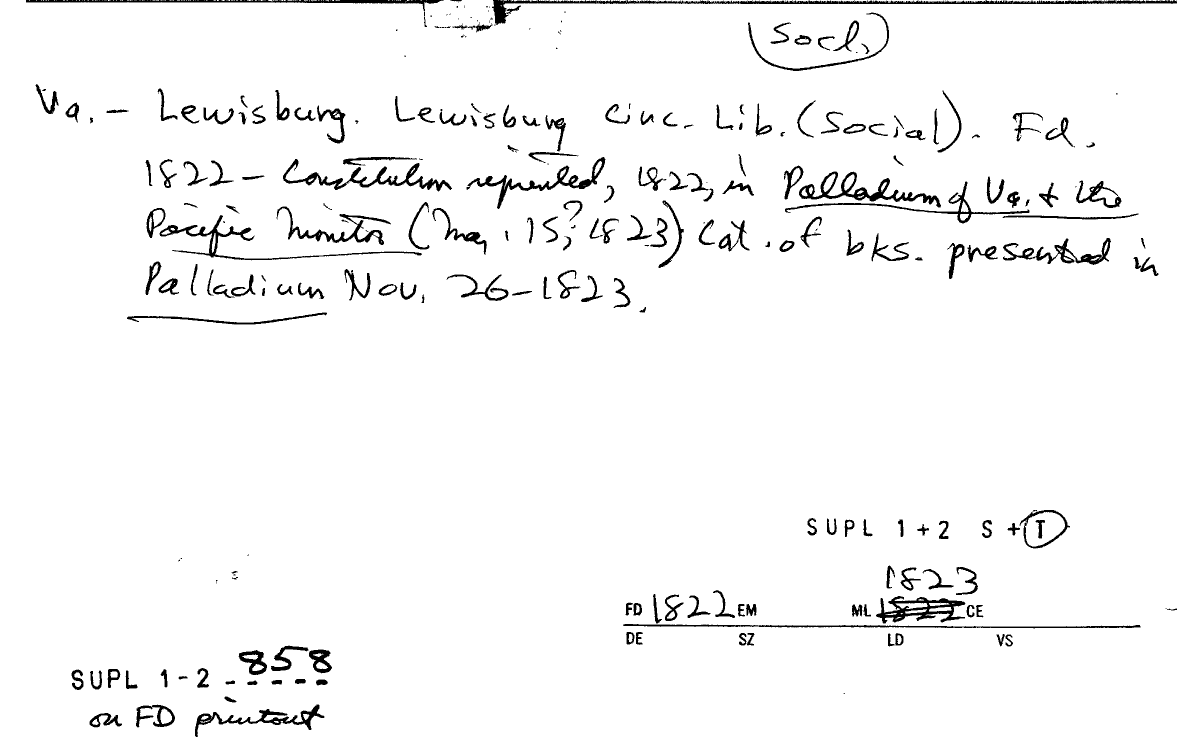 (Socl.)
Va. - Lewisburg. Lewisburg Circ. Lib. (Social). Fd.
1822 - Constitution reprinted, 1822, in Palladium of Va. & the
Pacific Monitor (Mar. 15,? 1823) Cat. of bks. presented in
Palladium Nov. 26-1823.
SUPL 1+2 S+T
1823
FD 1822 EM ML 1822 CE
DE SZ LD VS
SUPL 1-2 - 858
on FD printout